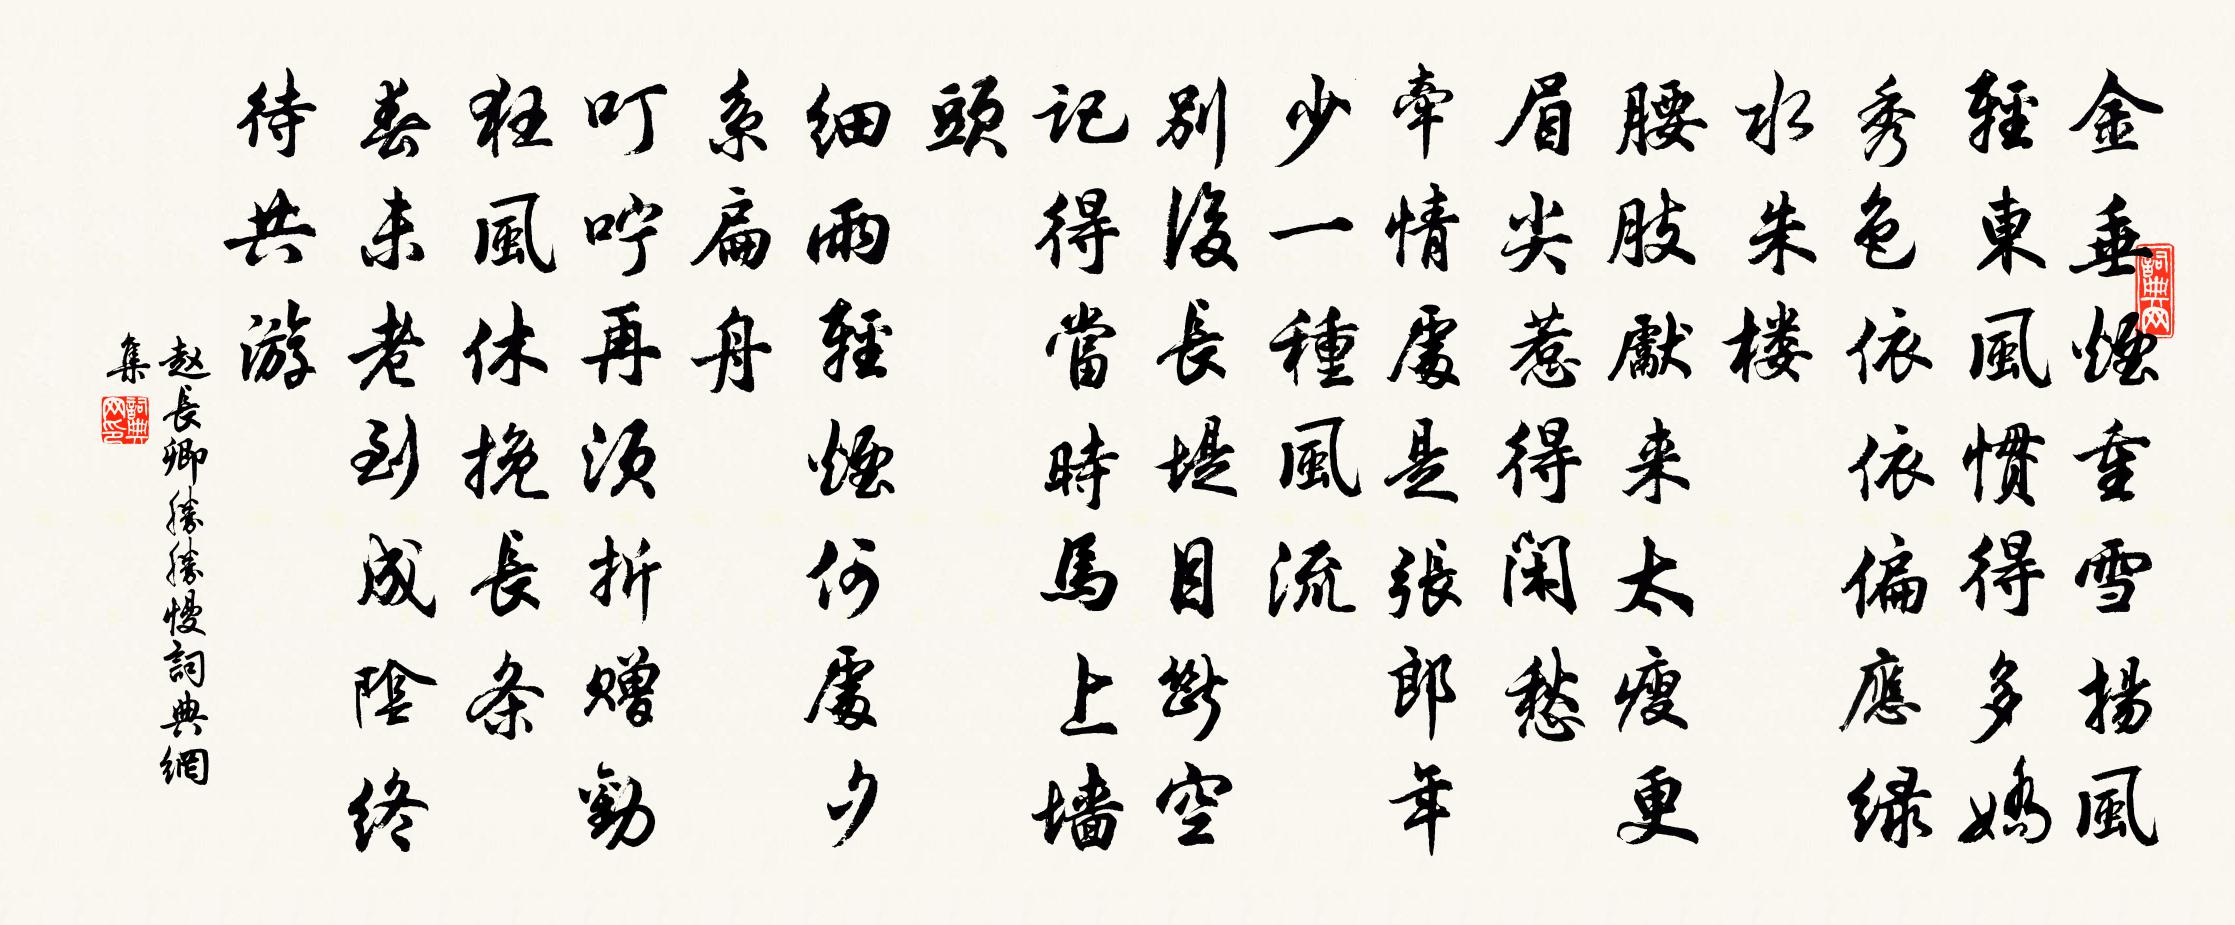 金垂煙重雪揚風
輕東風慣得多嬌
秀色依依偏應綠
水朱楼
腰肢獻来太瘦更
眉尖惹得閑愁
牽情處是張郎年
少一種風流
別後長堤目斷空
記得當時馬上墻
頭
細雨輕煙何處夕
系扁舟
叮咛再須折贈勸
狂風休挽長条
春未老到成陰終
待共游
赵長卿勝勝慢詞典網
集
詞典网
詞典网印